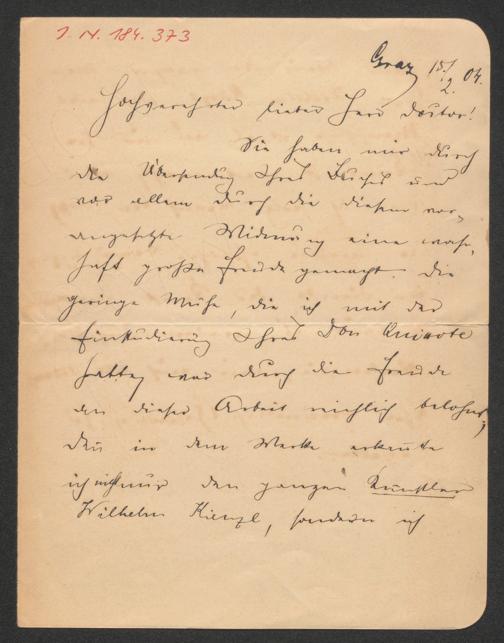 I. N. 184.373
Graz 15./2. 04.
Hochverehrter lieber Herr Doctor!
Sie haben mir durch
die Übersendung Ihres Buches und
vor allem durch die diesem vor-
angesetzte Widmung eine wahr-
haft große Freude gemacht. Die
geringe Mühe, die ich mit der
Einstudierung Ihres Don Quixote
hatte, war durch die Freude
an dieser Arbeit reichlich belohnt,
denn in dem Werke erkannte
ich nicht nur den ganzen Künstler
Wilhelm Kienzl, sondern ich